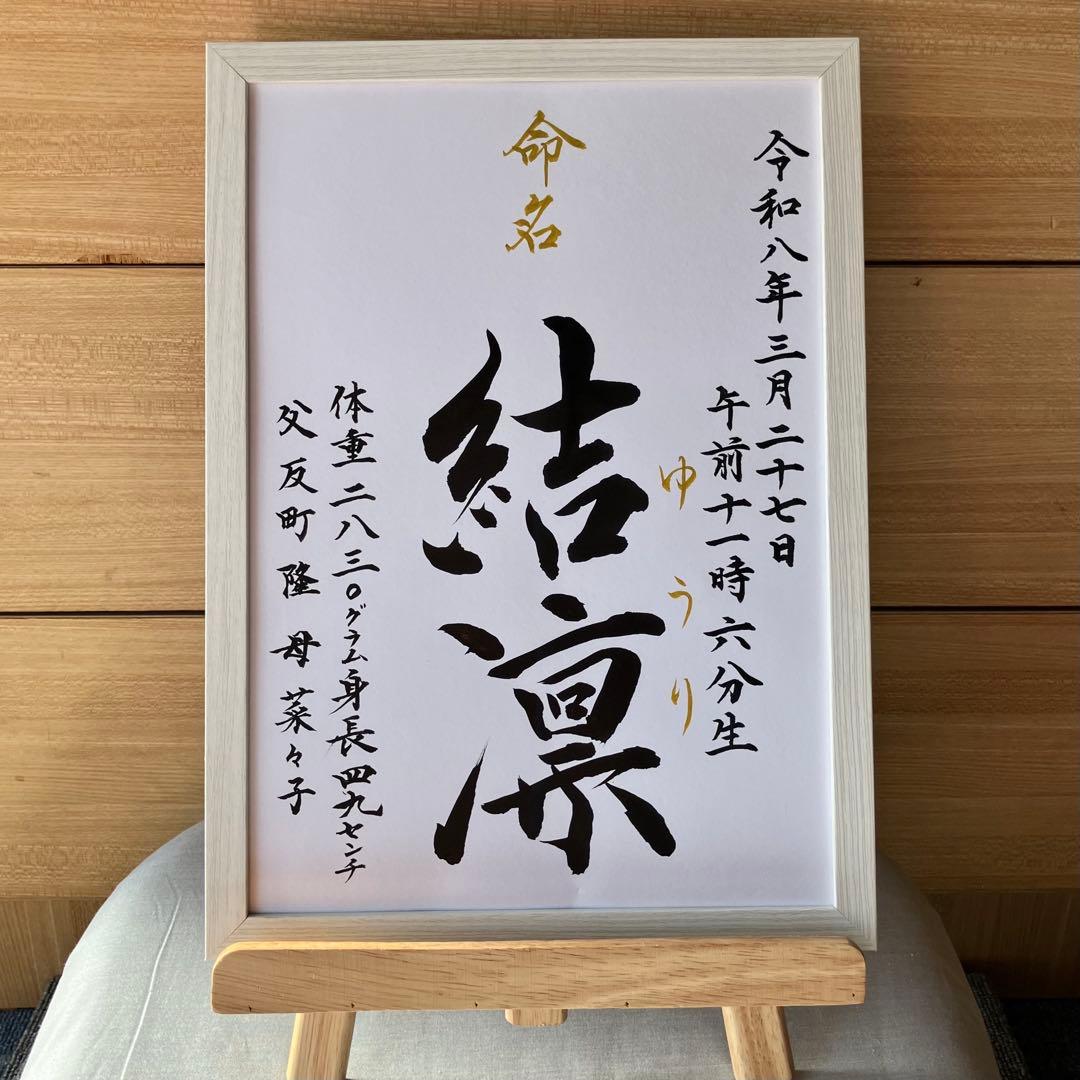 令和八年三月二十七日
午前十一時六分生
命名
結凛
ゆうり
体重二八三〇グラム身長四九センチ
父反町隆母菜々子